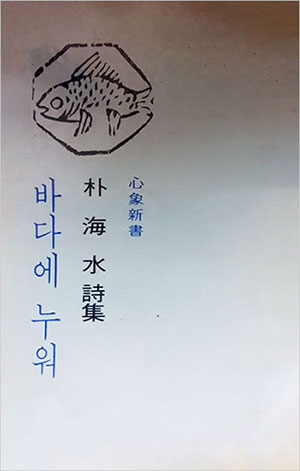 心象新書
朴海水 詩集
바다에 누워